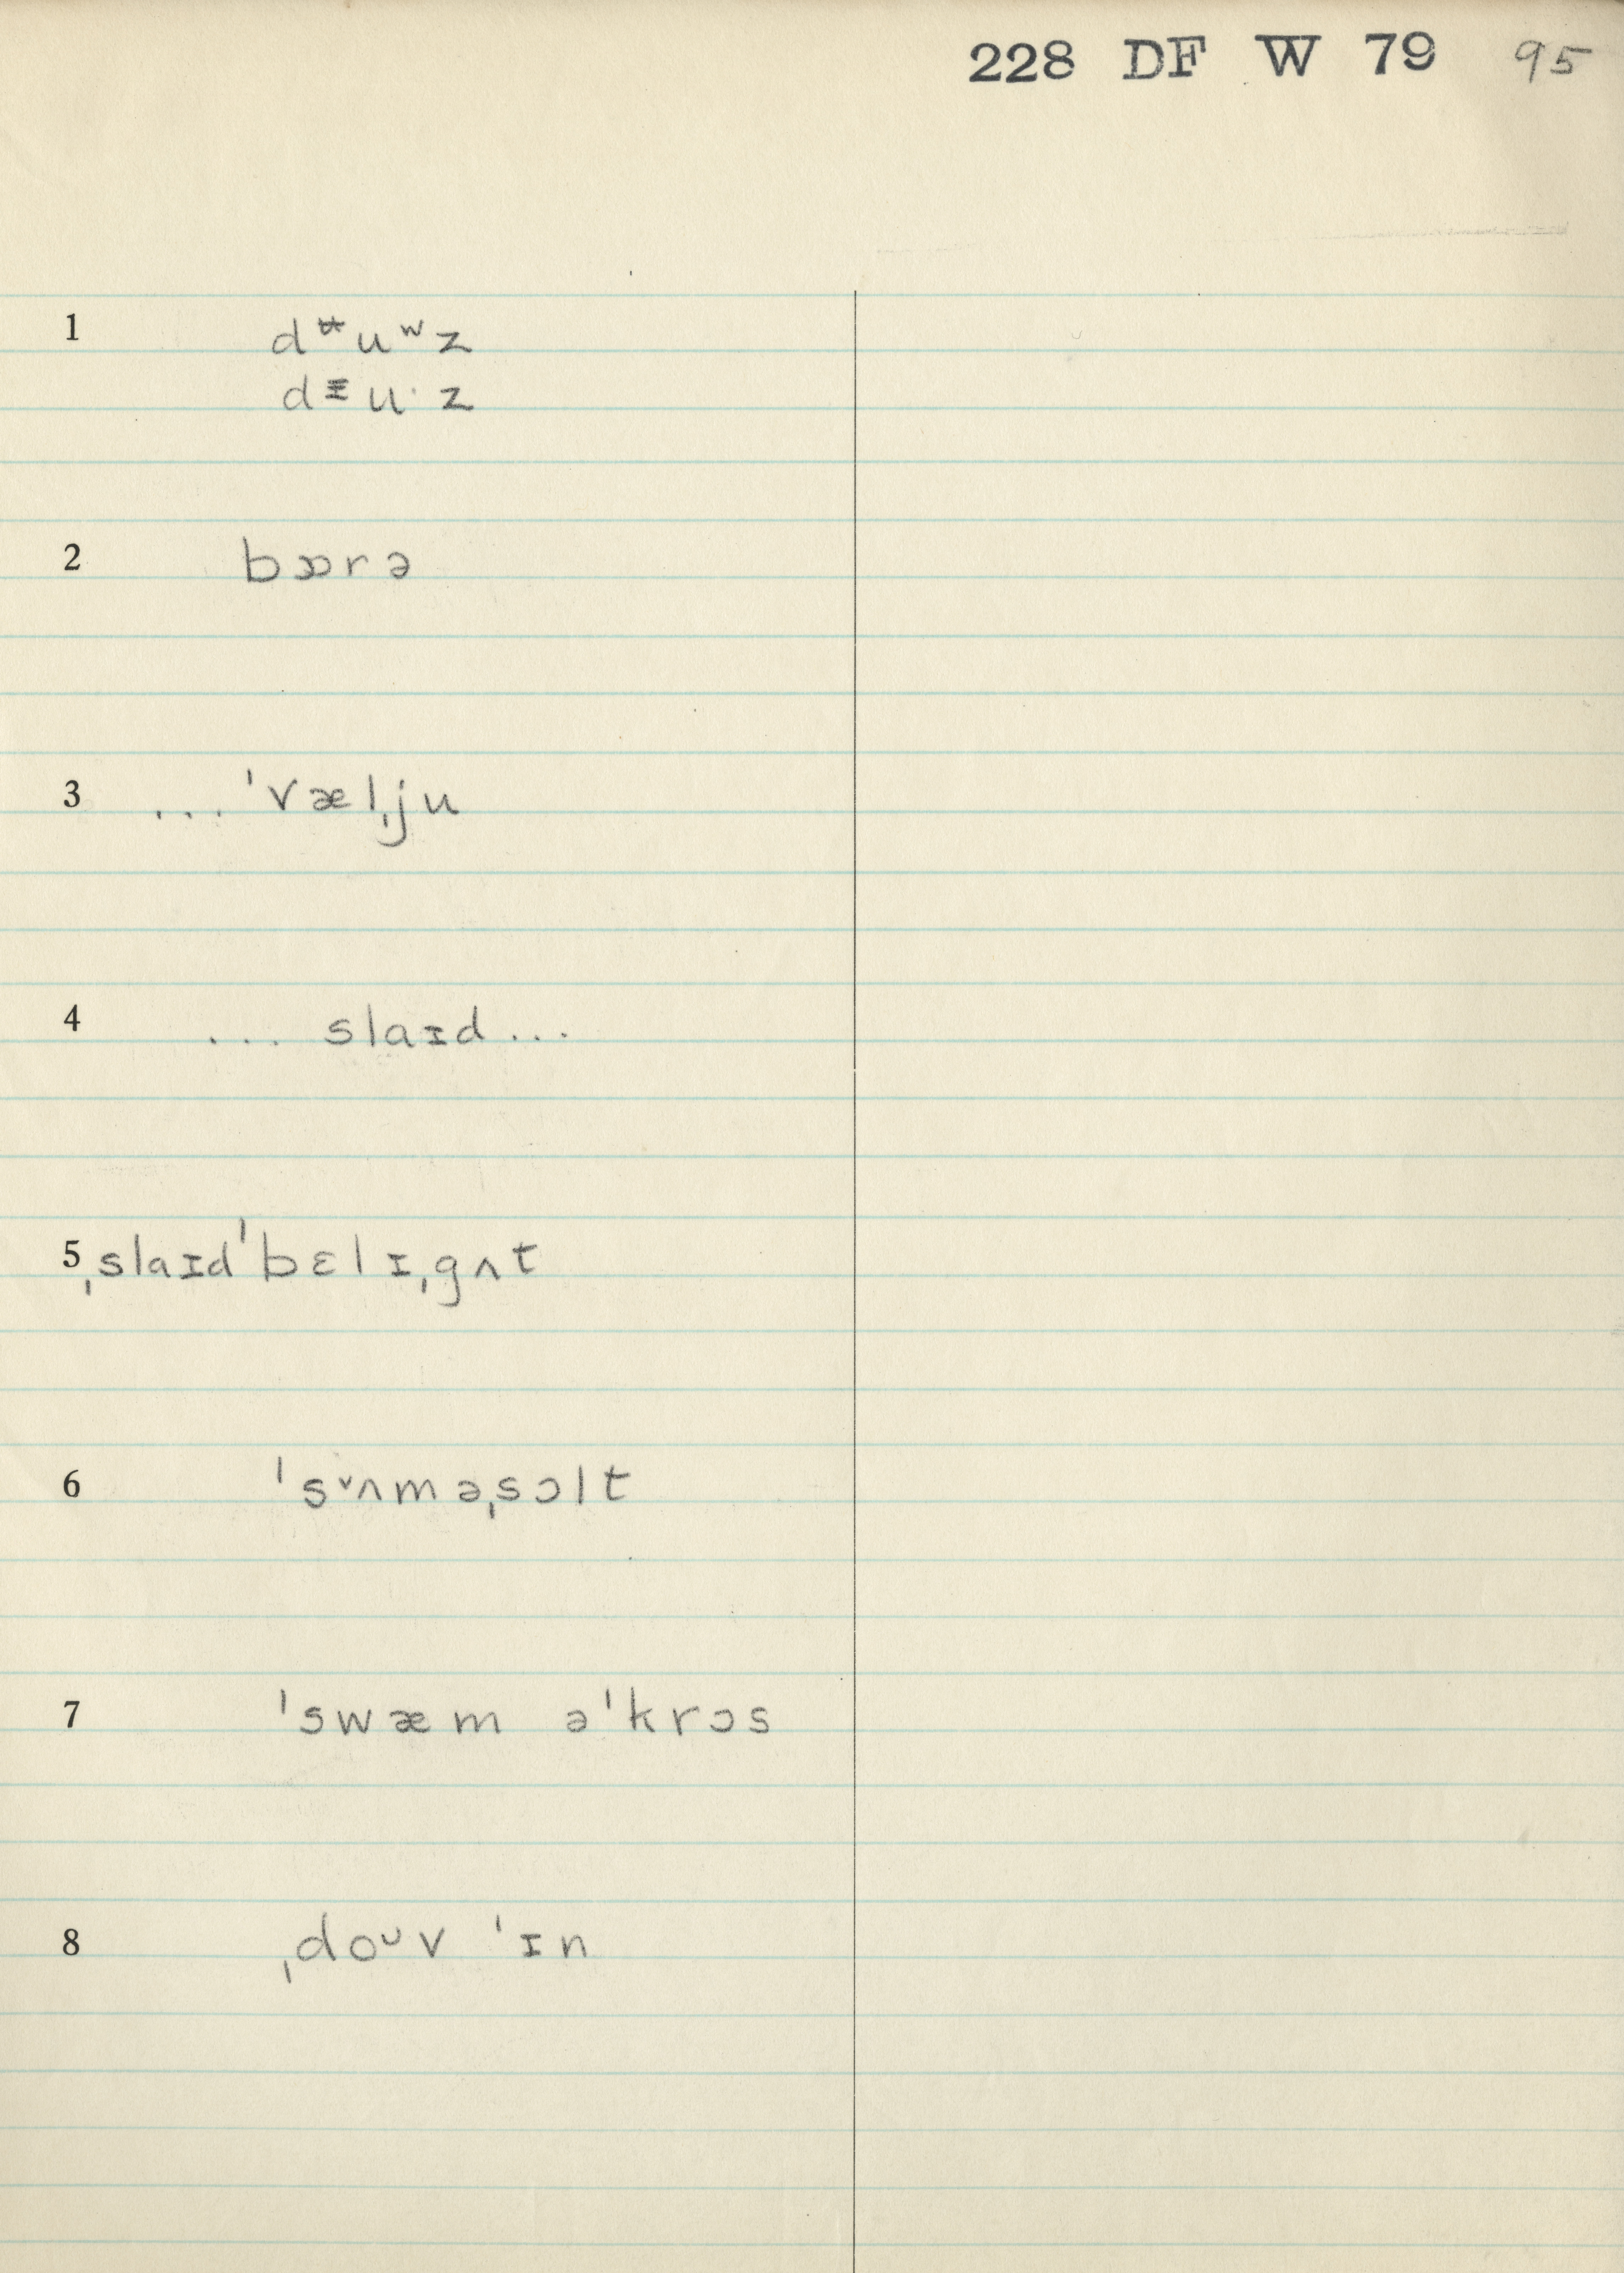 228 DF W 79 95
1 dᶶuʷz
dᵻuˑz
2 bɒrə
3 ... ˈvælˌju
4 ... slaɪd ...
5 ˌslaɪdˈbɛlɪˌgʌt
6 ˈsᵛʌməˌsɔlt
7 ˈswæm əˈkrɔs
8 ˌdoᴗv ˈɪn